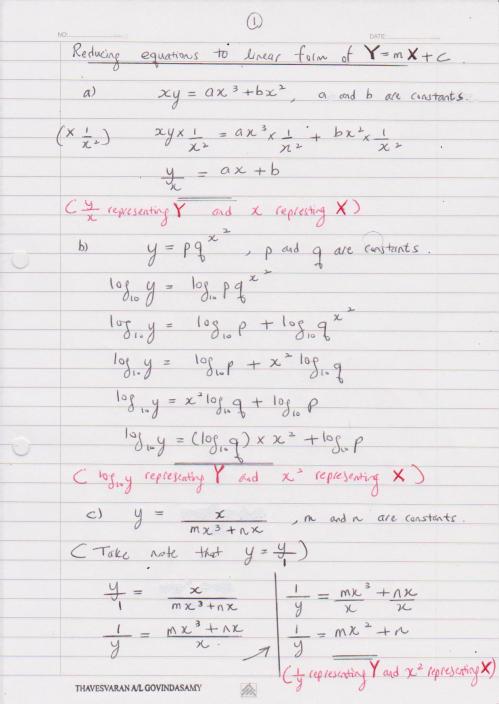 ①
NO.: DATE:
Reducing equations to linear form of Y=mX+c
a) xy = ax³ + bx², a and b are constants.
(× 1/x²) xy × 1/x² = ax³ × 1/x² + bx² × 1/x²
y/x = ax + b
(y/x representing Y and x represting X)
b) y = pq^x², p and q are constants.
log₁₀ y = log₁₀ pq^x²
log₁₀ y = log₁₀ p + log₁₀ q^x²
log₁₀ y = log₁₀ p + x² log₁₀ q
log₁₀ y = x² log₁₀ q + log₁₀ p
log₁₀ y = (log₁₀ q) × x² + log₁₀ p
(log₁₀ y representing Y and x² representing X)
c) y = x/(mx³ + nx), m and n are constants.
(Take note that y = y/1)
y/1 = x/(mx³ + nx)
1/y = (mx³ + nx)/x
1/y = mx³/x + nx/x
1/y = mx² + n
(1/y representing Y and x² representing X)
THAVESVARAN A/L GOVINDASAMY